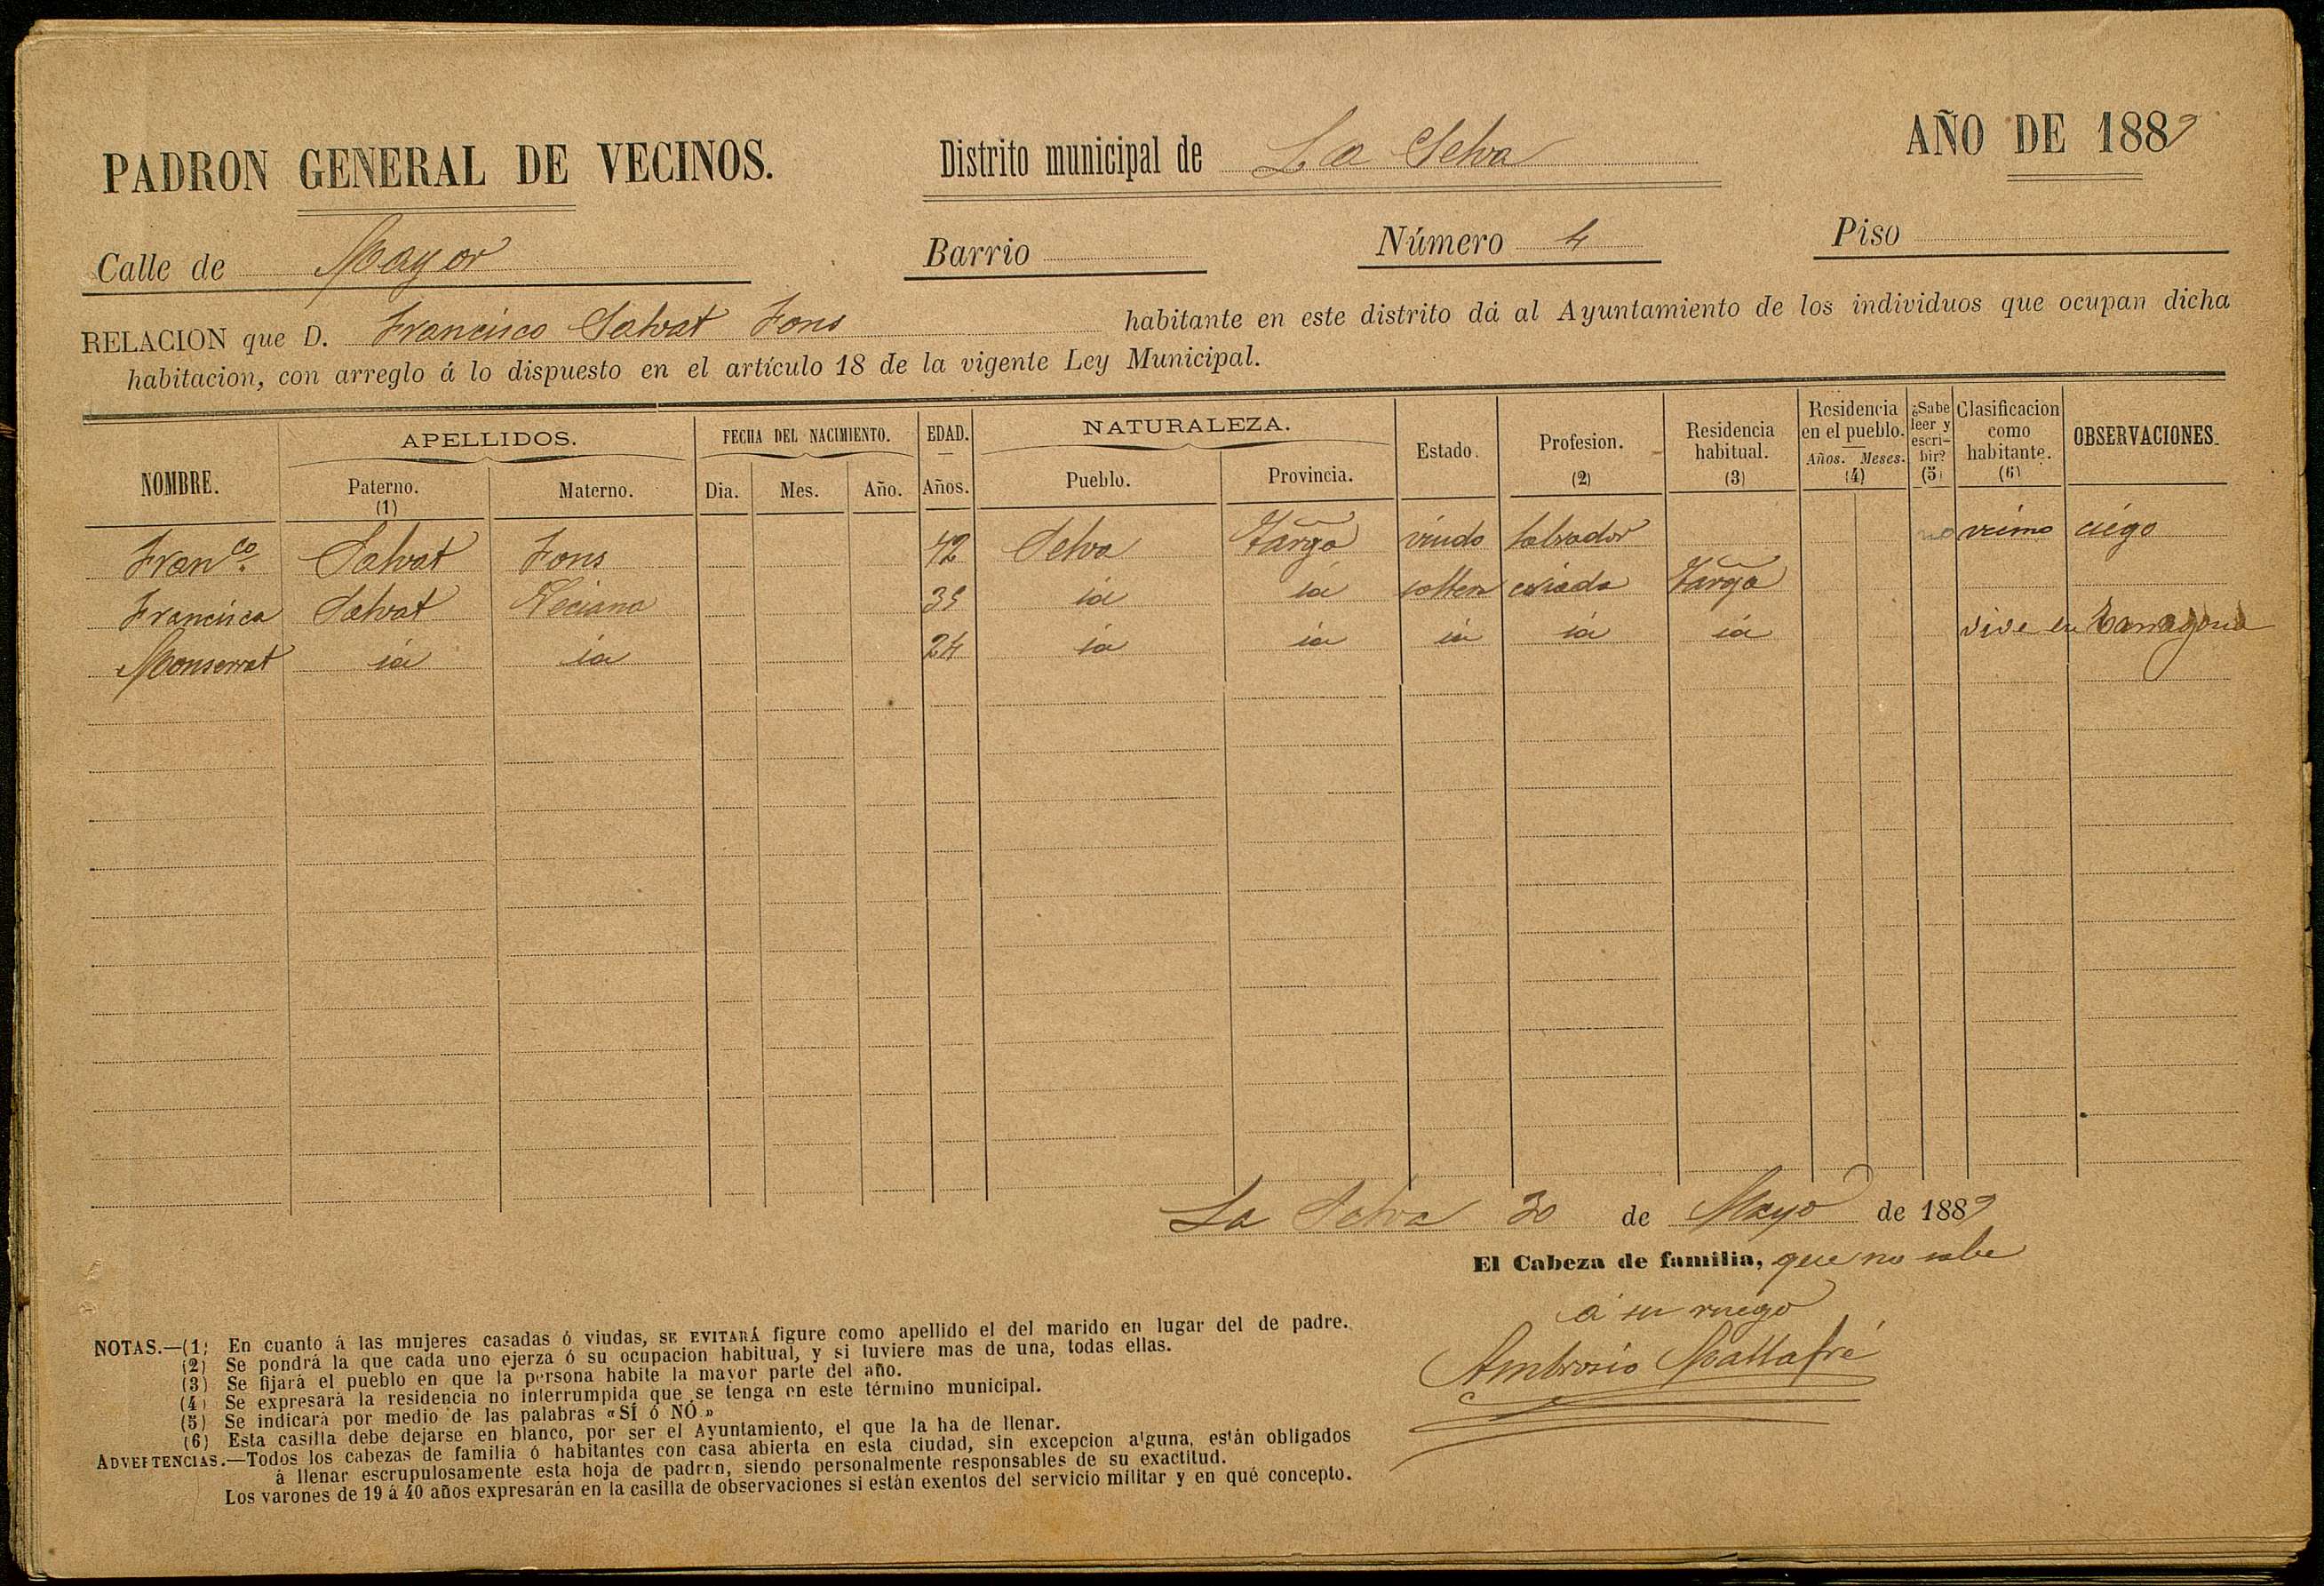 PADRON GENERAL DE VECINOS.
Distrito municipal de La Selva
AÑO DE 1889
Calle de Mayor
Barrio
Número 4
Piso
RELACION que D. Francisco Salvat Fons habitante en este distrito dá al Ayuntamiento de los individuos que ocupan dicha
habitacion, con arreglo á lo dispuesto en el artículo 18 de la vigente Ley Municipal.
NOMBRE. APELLIDOS. Paterno. (1) Materno. FECHA DEL NACIMIENTO. Dia. Mes. Año. EDAD. Años. NATURALEZA. Pueblo. Provincia. Estado. Profesion. (2) Residencia habitual. (3) Residencia en el pueblo. Años. Meses. (4) ¿Sabe leer y escribir? (5) Clasificacion como habitante. (6) OBSERVACIONES.
Franco. Salvat Fons 42 Selva Targa viudo labrador no vecino ciego
Francisca Salvat Veciana 35 id id soltera criada Targa
Monserrat id id 24 id id id id id vive en Tarragona
La Selva 30 de Mayo de 1889
El Cabeza de familia, que no sabe
á su ruego
Ambrosio Mallafré
NOTAS.—(1) En cuanto á las mujeres casadas ó viudas, SE EVITARÁ figure como apellido el del marido en lugar del de padre.
(2) Se pondrá la que cada uno ejerza ó su ocupacion habitual, y si tuviere mas de una, todas ellas.
(3) Se fijará el pueblo en que la persona habite la mayor parte del año.
(4) Se expresará la residencia no interrumpida que se tenga en este término municipal.
(5) Se indicará por medio de las palabras «SÍ ó NÓ.»
(6) Esta casilla debe dejarse en blanco, por ser el Ayuntamiento, el que la ha de llenar.
ADVERTENCIAS.—Todos los cabezas de familia ó habitantes con casa abierta en esta ciudad, sin excepcion alguna, están obligados
á llenar escrupulosamente esta hoja de padron, siendo personalmente responsables de su exactitud.
Los varones de 19 á 40 años expresarán en la casilla de observaciones si están exentos del servicio militar y en qué concepto.